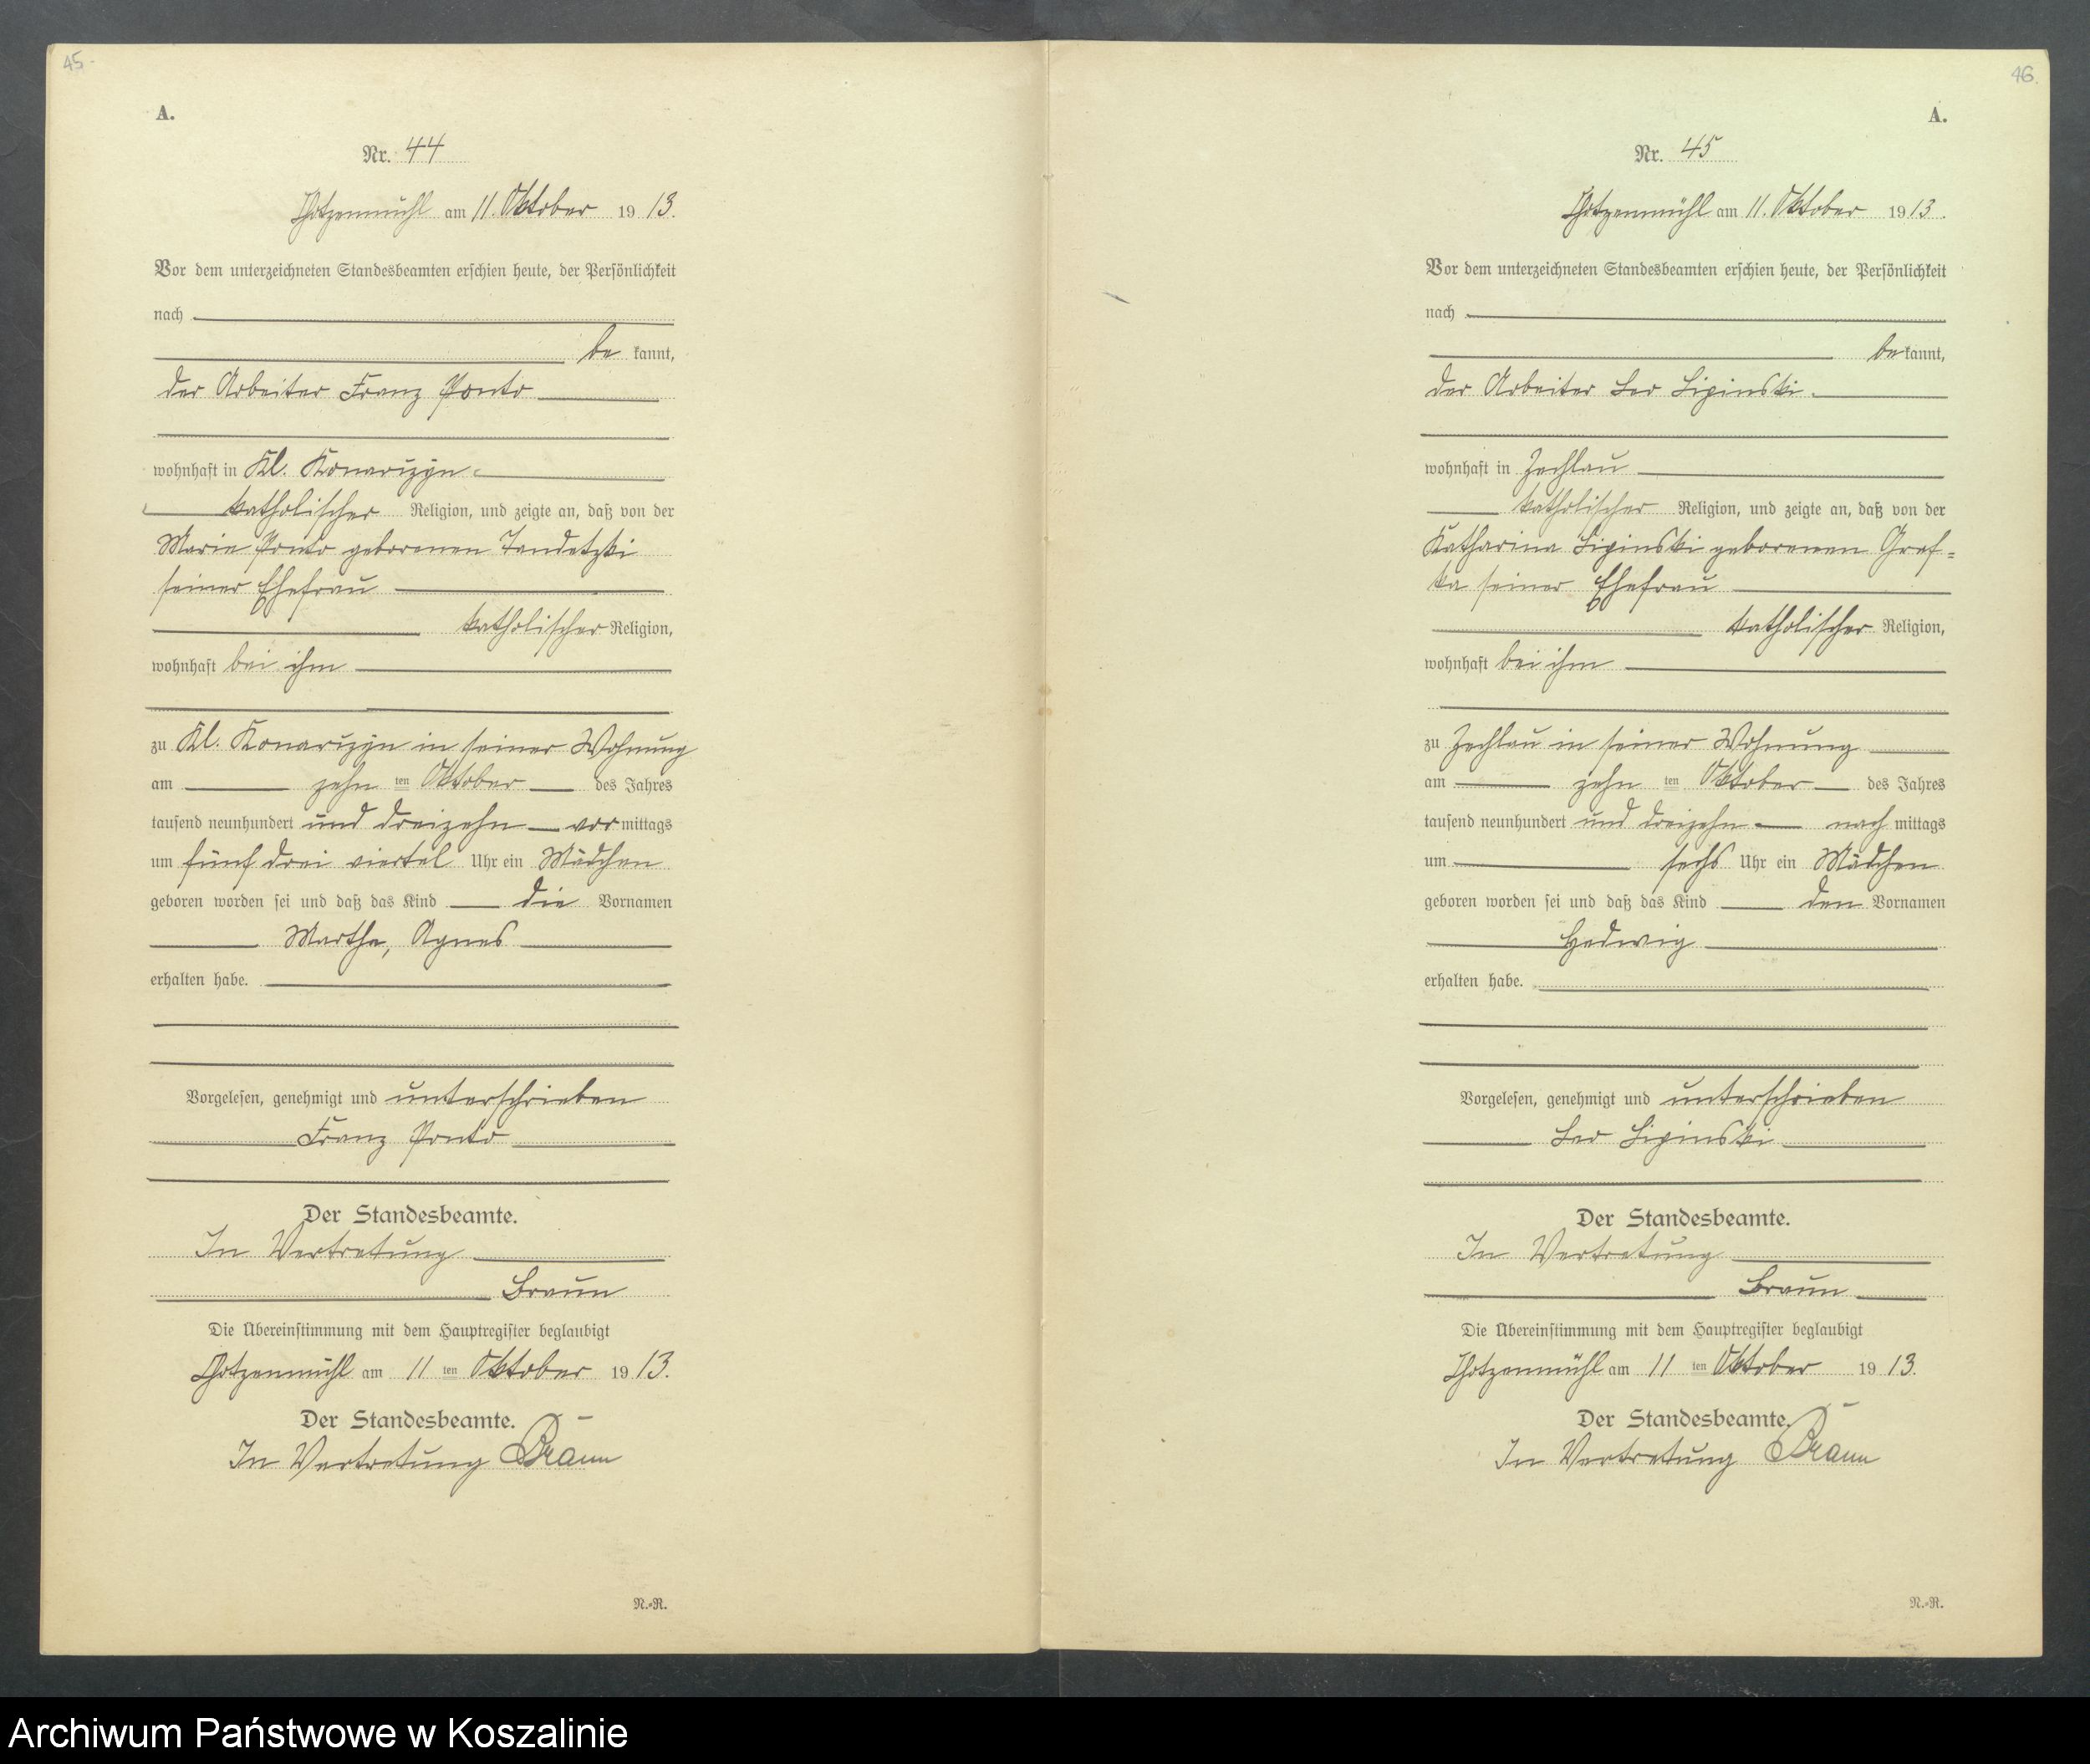 45.
A.
Nr. 44
Chotzenmühl am 11. Oktober 1913.
Vor dem unterzeichneten Standesbeamten erschien heute, der Persönlichkeit
nach
be kannt,
der Arbeiter Franz Ponto
wohnhaft in Kl. Konarczyn
katholischer Religion, und zeigte an, daß von der
Marie Ponto geborenen Tandetzki
seiner Ehefrau
katholischer Religion,
wohnhaft bei ihm
zu Kl. Konarczyn in seiner Wohnung
am zehn ten Oktober des Jahres
tausend neunhundert und dreizehn vor mittags
um fünf drei viertel Uhr ein Mädchen
geboren worden sei und daß das Kind die Vornamen
Martha, Agnes
erhalten habe.
Vorgelesen, genehmigt und unterschrieben
Franz Ponto
Der Standesbeamte.
In Vertretung
Braun
Die Übereinstimmung mit dem Hauptregister beglaubigt
Chotzenmühl am 11 ten Oktober 1913.
Der Standesbeamte.
In Vertretung Braun
N.-R.
46.
A.
Nr. 45
Chotzenmühl am 11. Oktober 1913.
Vor dem unterzeichneten Standesbeamten erschien heute, der Persönlichkeit
nach
be kannt,
der Arbeiter Leo Lipinski
wohnhaft in Zechlau
katholischer Religion, und zeigte an, daß von der
Katharina Lipinski geborenen Graf=
ka seiner Ehefrau
katholischer Religion,
wohnhaft bei ihm
zu Zechlau in seiner Wohnung
am zehn ten Oktober des Jahres
tausend neunhundert und dreizehn nach mittags
um sechs Uhr ein Mädchen
geboren worden sei und daß das Kind den Vornamen
Hedwig
erhalten habe.
Vorgelesen, genehmigt und unterschrieben
Leo Lipinski
Der Standesbeamte.
In Vertretung
Braun
Die Übereinstimmung mit dem Hauptregister beglaubigt
Chotzenmühl am 11 ten Oktober 1913.
Der Standesbeamte.
In Vertretung Braun
N.-R.
Archiwum Państwowe w Koszalinie